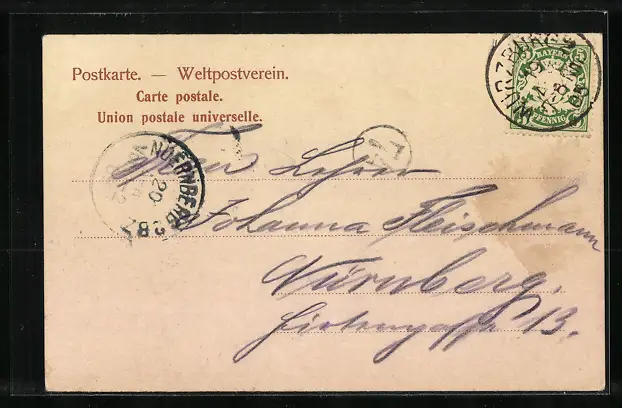 Postkarte. — Weltpostverein.
Carte postale.
Union postale universelle.
WÜRZBURG
BAYERN
5 5
PFENNIG
NUERNBERG
20
Frau Lehrer
Johanna Fleischmann
Nürnberg.
13.